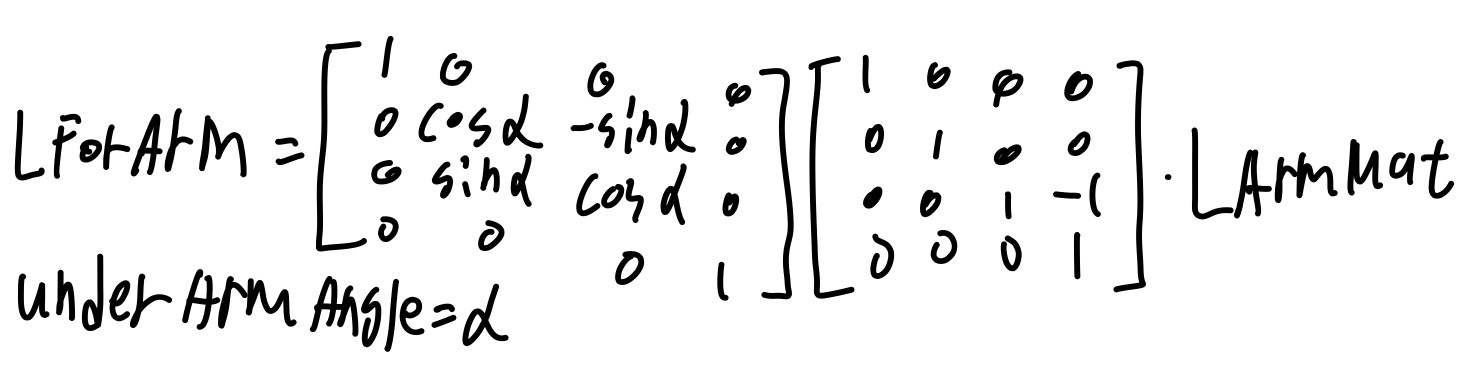 LForArm = [1 0 0 0; 0 cosα -sinα 0; 0 sinα cosα 0; 0 0 0 1] [1 0 0 0; 0 1 0 0; 0 0 1 -1; 0 0 0 1] · LArmMat
underArmAngle=α